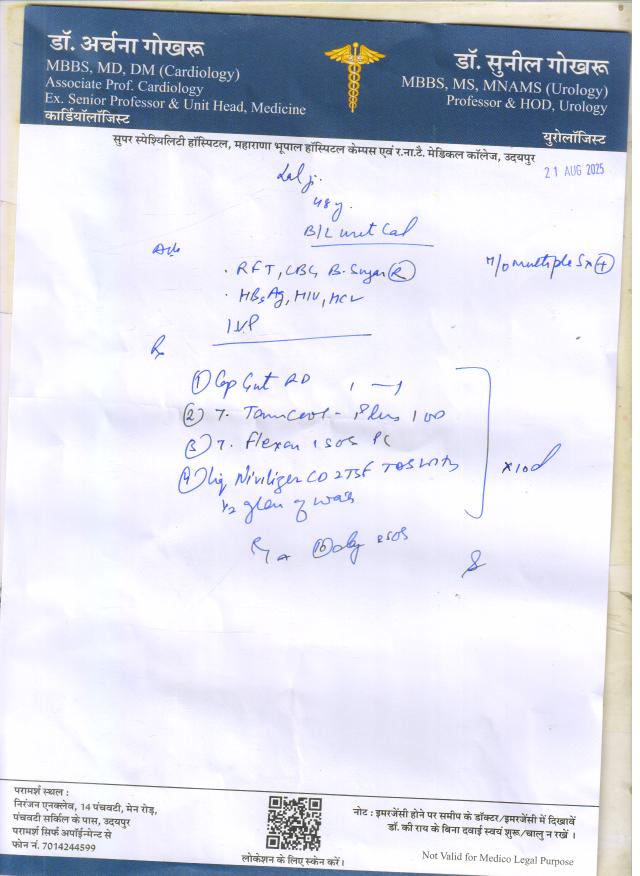 डॉ. अर्चना गोखरू
MBBS, MD, DM (Cardiology)
Associate Prof. Cardiology
Ex. Senior Professor & Unit Head, Medicine
कार्डियॉलॉजिस्ट
डॉ. सुनील गोखरू
MBBS, MS, MNAMS (Urology)
Professor & HOD, Urology
युरोलॉजिस्ट
सुपर स्पेश्यिलिटी हॉस्पिटल, महाराणा भूपाल हॉस्पिटल केम्पस एवं र.ना.टै. मेडिकल कॉलेज, उदयपुर
21 AUG 2025
Lal ji
48y
B/L
Adv
. RFT, CBC, B. Sugar (R)
H/o multiple Sx (+)
. HBsAg, HIV, HCV
IVP
Rx
(1) Cap
(2) T. Plus 1 OD
(3) T. Flexon 1 SOS PC
(4) Liq 2TSF TDS with
1/2 glass of water
x10d
(10) day SOS
परामर्श स्थल :
निरंजन एनक्लेव, 14 पंचवटी, मेन रोड़,
पंचवटी सर्किल के पास, उदयपुर
परामर्श सिर्फ अपॉईन्मेन्ट से
फोन नं. 7014244599
लोकेशन के लिए स्केन करें।
नोट : इमरजेंसी होने पर समीप के डॉक्टर/इमरजेंसी में दिखावें
डॉ. की राय के बिना दवाई स्वयं शुरू/चालु न रखें ।
Not Valid for Medico Legal Purpose